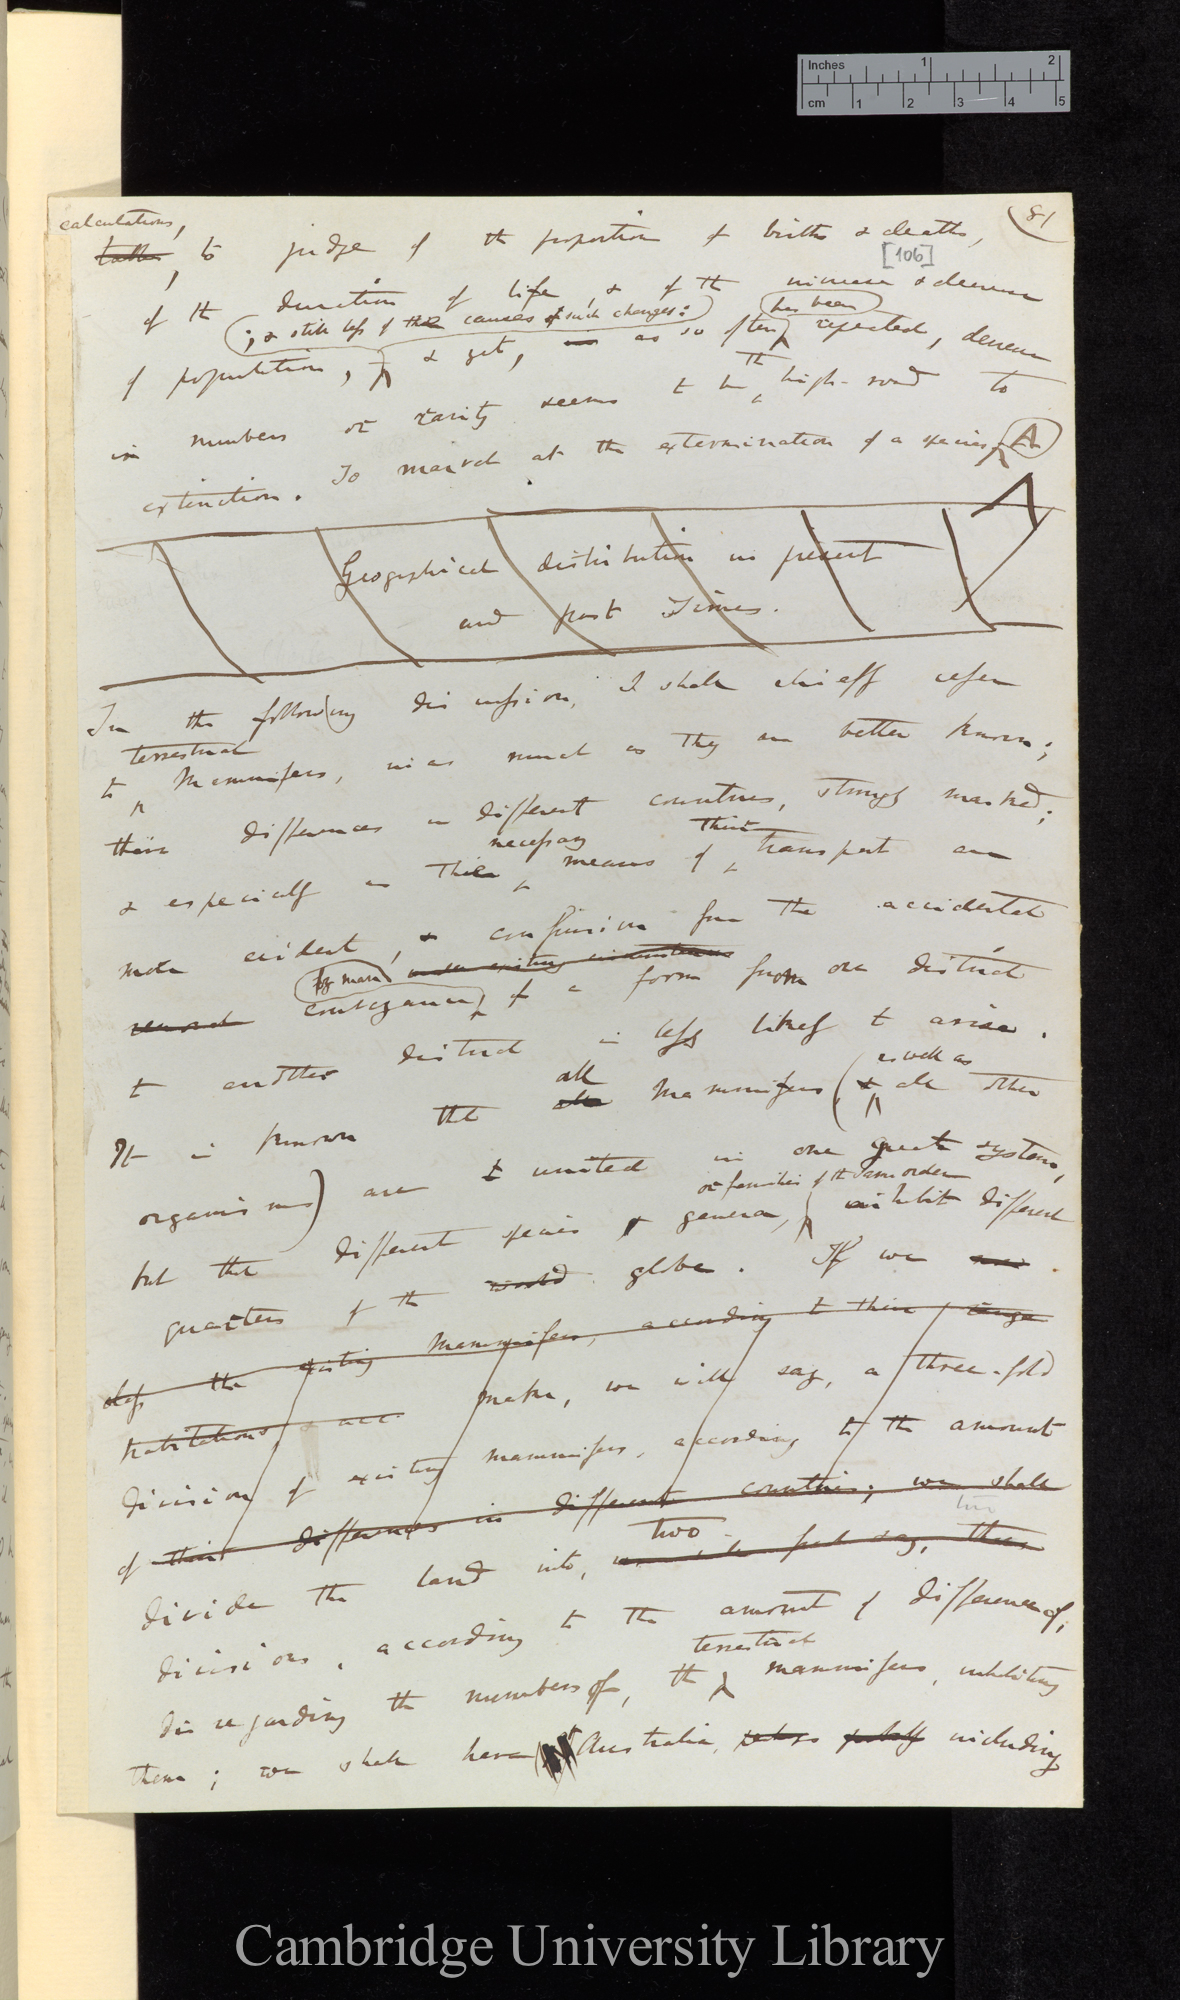 Inches 1 2
cm 1 2 3 4 5
81
calculations,
tables, to judge of the proportion of births & deaths,
[106]
of the duration of life, & of the increase & decrease
; & still less of the causes of such changes: has been
of population, & yet, as so often repeated, decrease
the
in numbers or rarity seems to be high-road to
extinction. To marvel at the extermination of a species A
A
Geographical distribution in present
and past Times.
In the following discussion, I shall chiefly refer
terrestrial
to Mammifers, inasmuch as they are better known;
their differences in different countries, strongly marked;
necessary their
& especially as their means of transport are
more evident, & confusion from the accidental
by man under existing circumstances
removal conveyance of a form from one district
to another district is less likely to arise.
all as well as
It is known that all Mammifers (& all other
organisms) are united in one great system,
or families of the same order
but that different species or genera, inhabit different
quarters of the world globe. If we
class the existing Mammifers, according to their range
habitations, & acc. make, we will say, a three-fold
division of existing mammifers, according to the amount
of their differences in different countries; we shall
two two
divide the land into, we will first say, three
divisions, according to the amount of difference of,
terrestrial
disregarding the numbers of, the mammifers, inhabiting
them; we shall have 1st Australia, including
Cambridge University Library